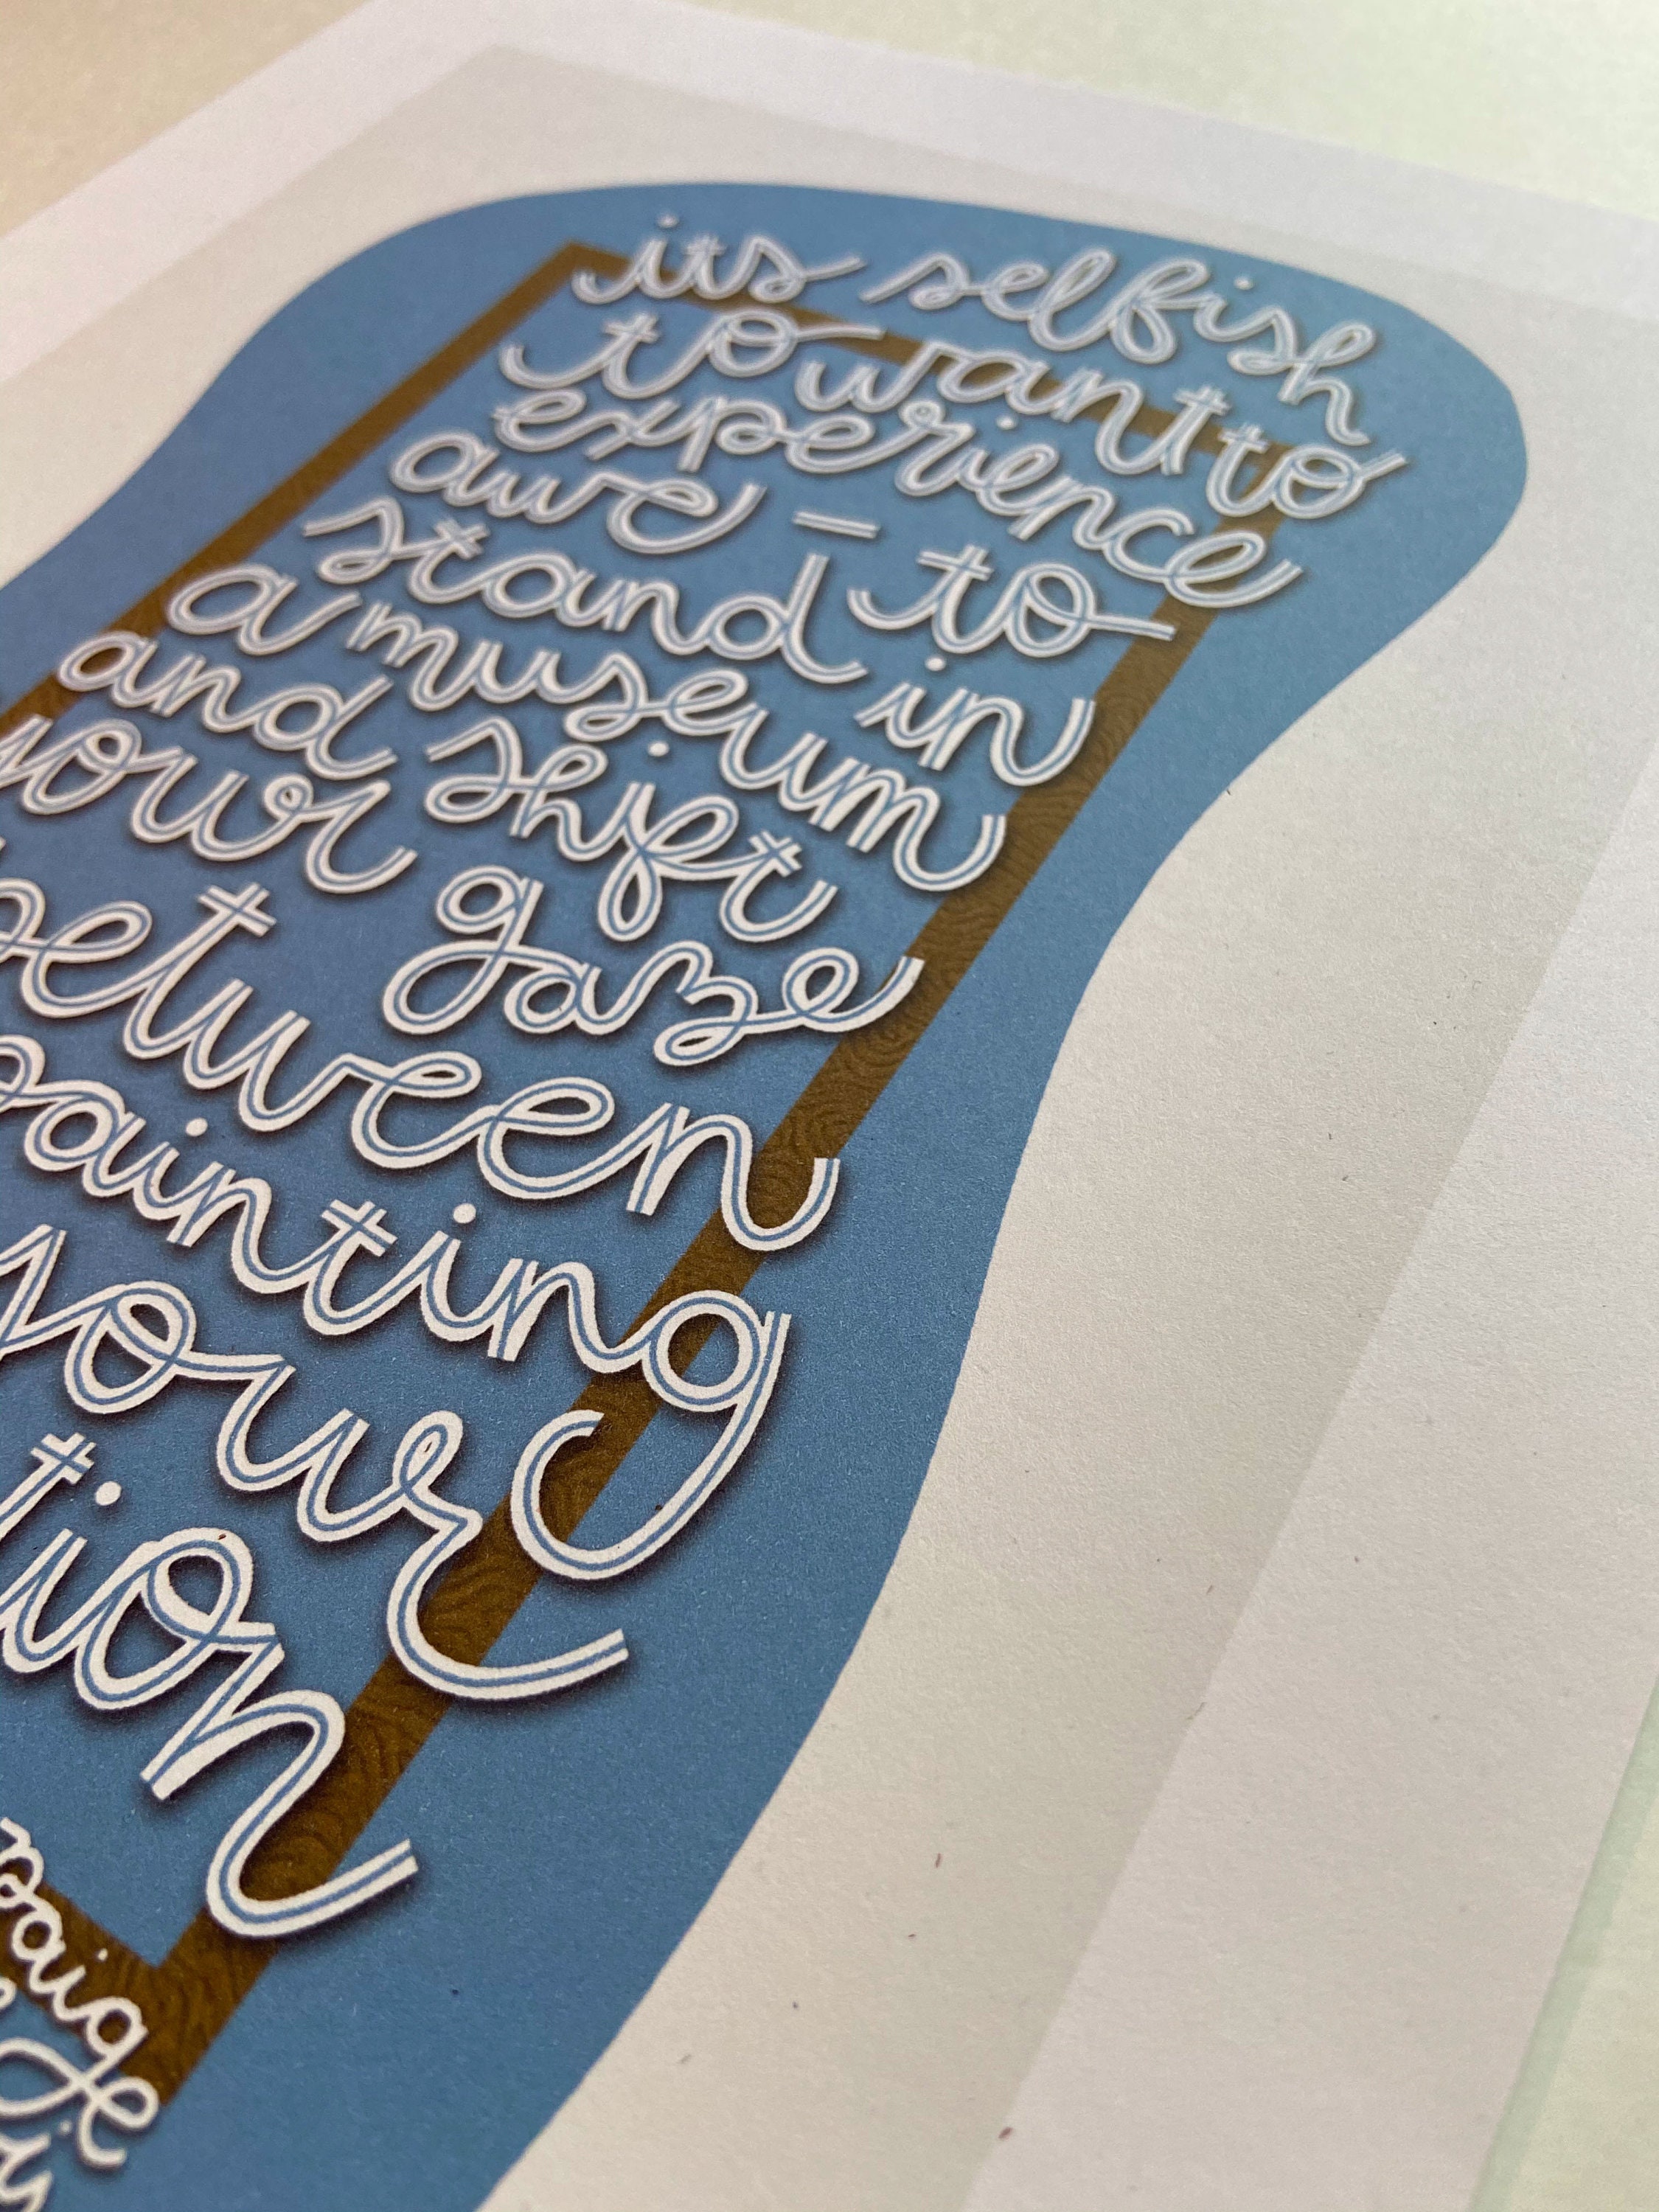 its selfish
to want to
experience
awe – to
stand in
a museum
and shift
your gaze
between
painting
your
tion
paige